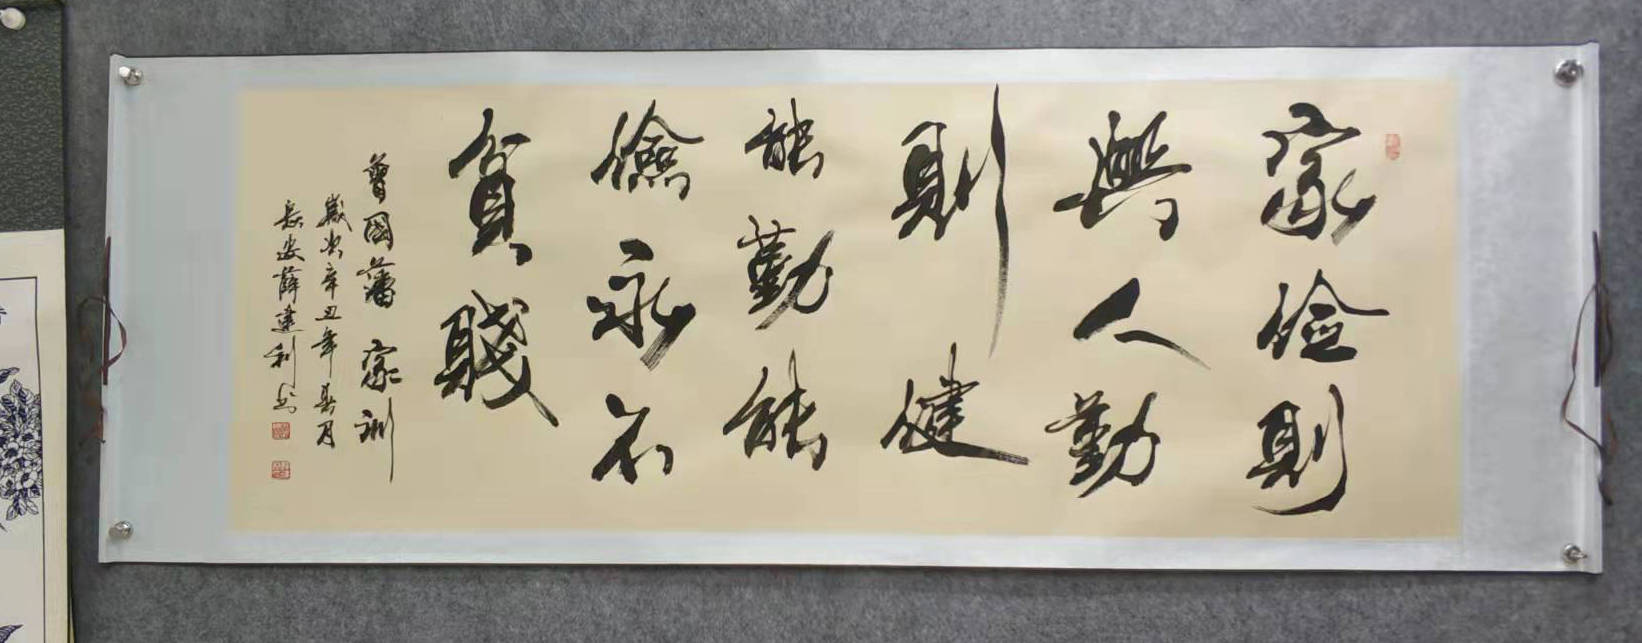 家俭则
興人勤
則健
能勤能
儉永不
貧賤
曾國藩家訓
歲次辛丑年
長安薛建利书